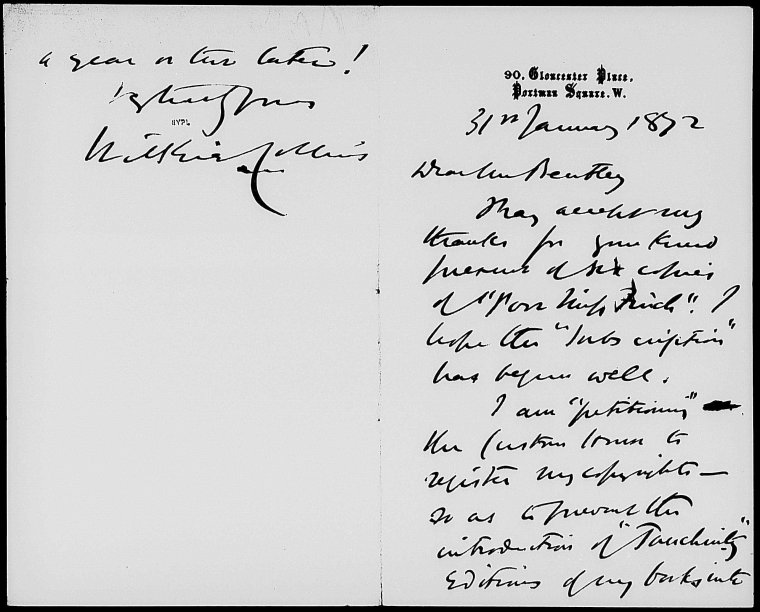 90, Gloucester Place,
Portman Square. W.
31st January 1872
Dear Mr Bentley
Pray accept my
thanks for your kind
present of six copies
of "Poor Miss Finch". I
hope the "Subscription"
has begun well.
I am "petitioning"
the Custom House to
register my copyrights —
so as to prevent the
introduction of "Tauchnitz"
Editions of my books into
a year or two later!
Vy truly yours
NYPL
Wilkie Collins